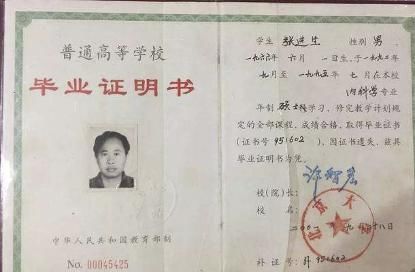 普通高等学校
毕业证明书
中华人民共和国教育部制
No. 00045425
学生 张进生 性别 男,
一九六六年 六月 一日生,于一九九二年
九月至 一九九五年 七月在本校
内科学 专业
年制 硕士 学习,修完教学计划规
定的全部课程,成绩合格,取得毕业证书
(证书号 951602),因证书遗失,兹具
毕业证明书为凭。
校(院)长:
校 名:
二〇〇 年九月十八日
补 证 号: 951602